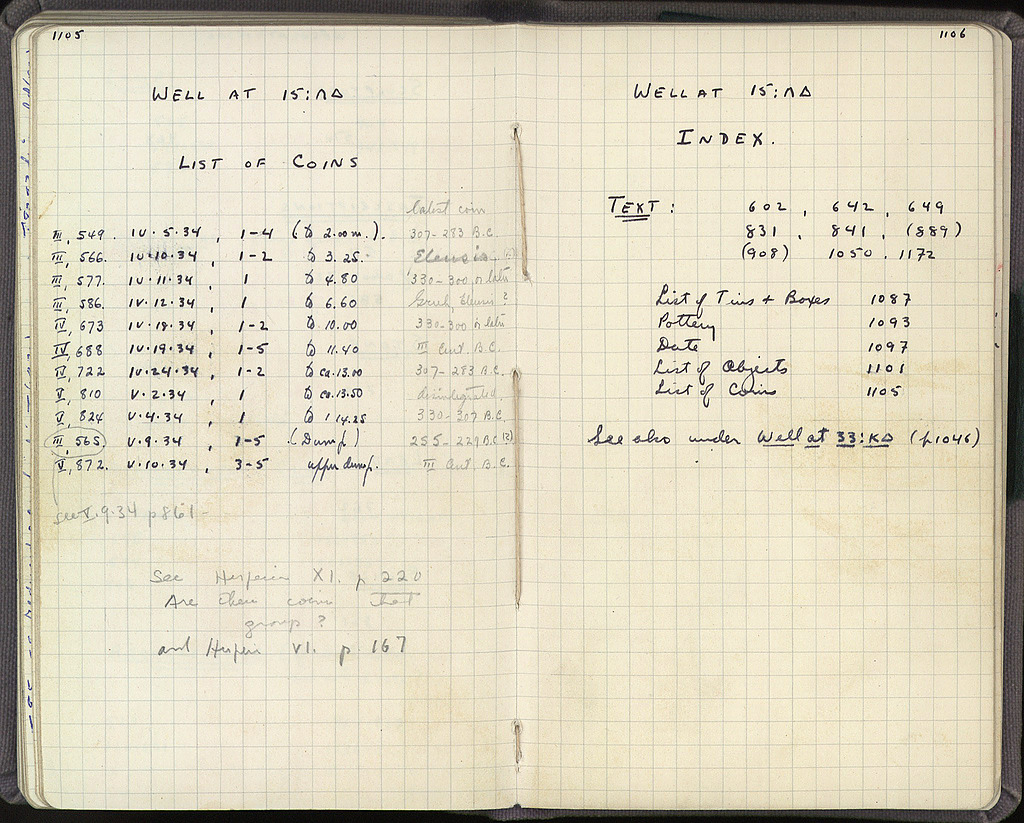 1105
WELL AT 15:ΛΔ
LIST OF COINS
latest coin
III, 549. IV·5·34, 1-4 (ⓓ 2.00m.). 307-283 B.C.
III, 566. IV·10·34, 1-2 ⓓ 3.25. Eleusis (?)
III, 577. IV·11·34, 1 ⓓ 4.80 330-300 or later
III, 586. IV·12·34, 1 ⓓ 6.60 Eleusis ?
IV, 673 IV·18·34, 1-2 ⓓ 10.00 330-300 or later
IV, 688 IV·19·34, 1-5 ⓓ 11.40 III Cent. B.C.
IV, 722 IV·24·34, 1-2 ⓓ ca.13.00 307-283 B.C.
V, 810 V·2·34, 1 ⓓ ca.13.50 disintegrated,
V, 824 V·4·34, 1 ⓓ 14.25 330-307 B.C.
III, 565. V·9·34, 1-5 (Dump) 255-229 B.C. (?)
V, 872. V·10·34, 3-5 upper dump. III Cent. B.C.
see V.9.34 p 861-
See Hesperia XI. p 220
Are these coins that
group ?
and Hesperia VI. p. 167
1106
WELL AT 15:ΛΔ
INDEX.
TEXT: 602, 642, 649
831, 841, (889)
(908) 1050. 1172
List of Tins + Boxes 1087
Pottery 1093
Date 1097
List of Objects 1101
List of Coins 1105
See also under Well at 33:ΚΔ (p1046)